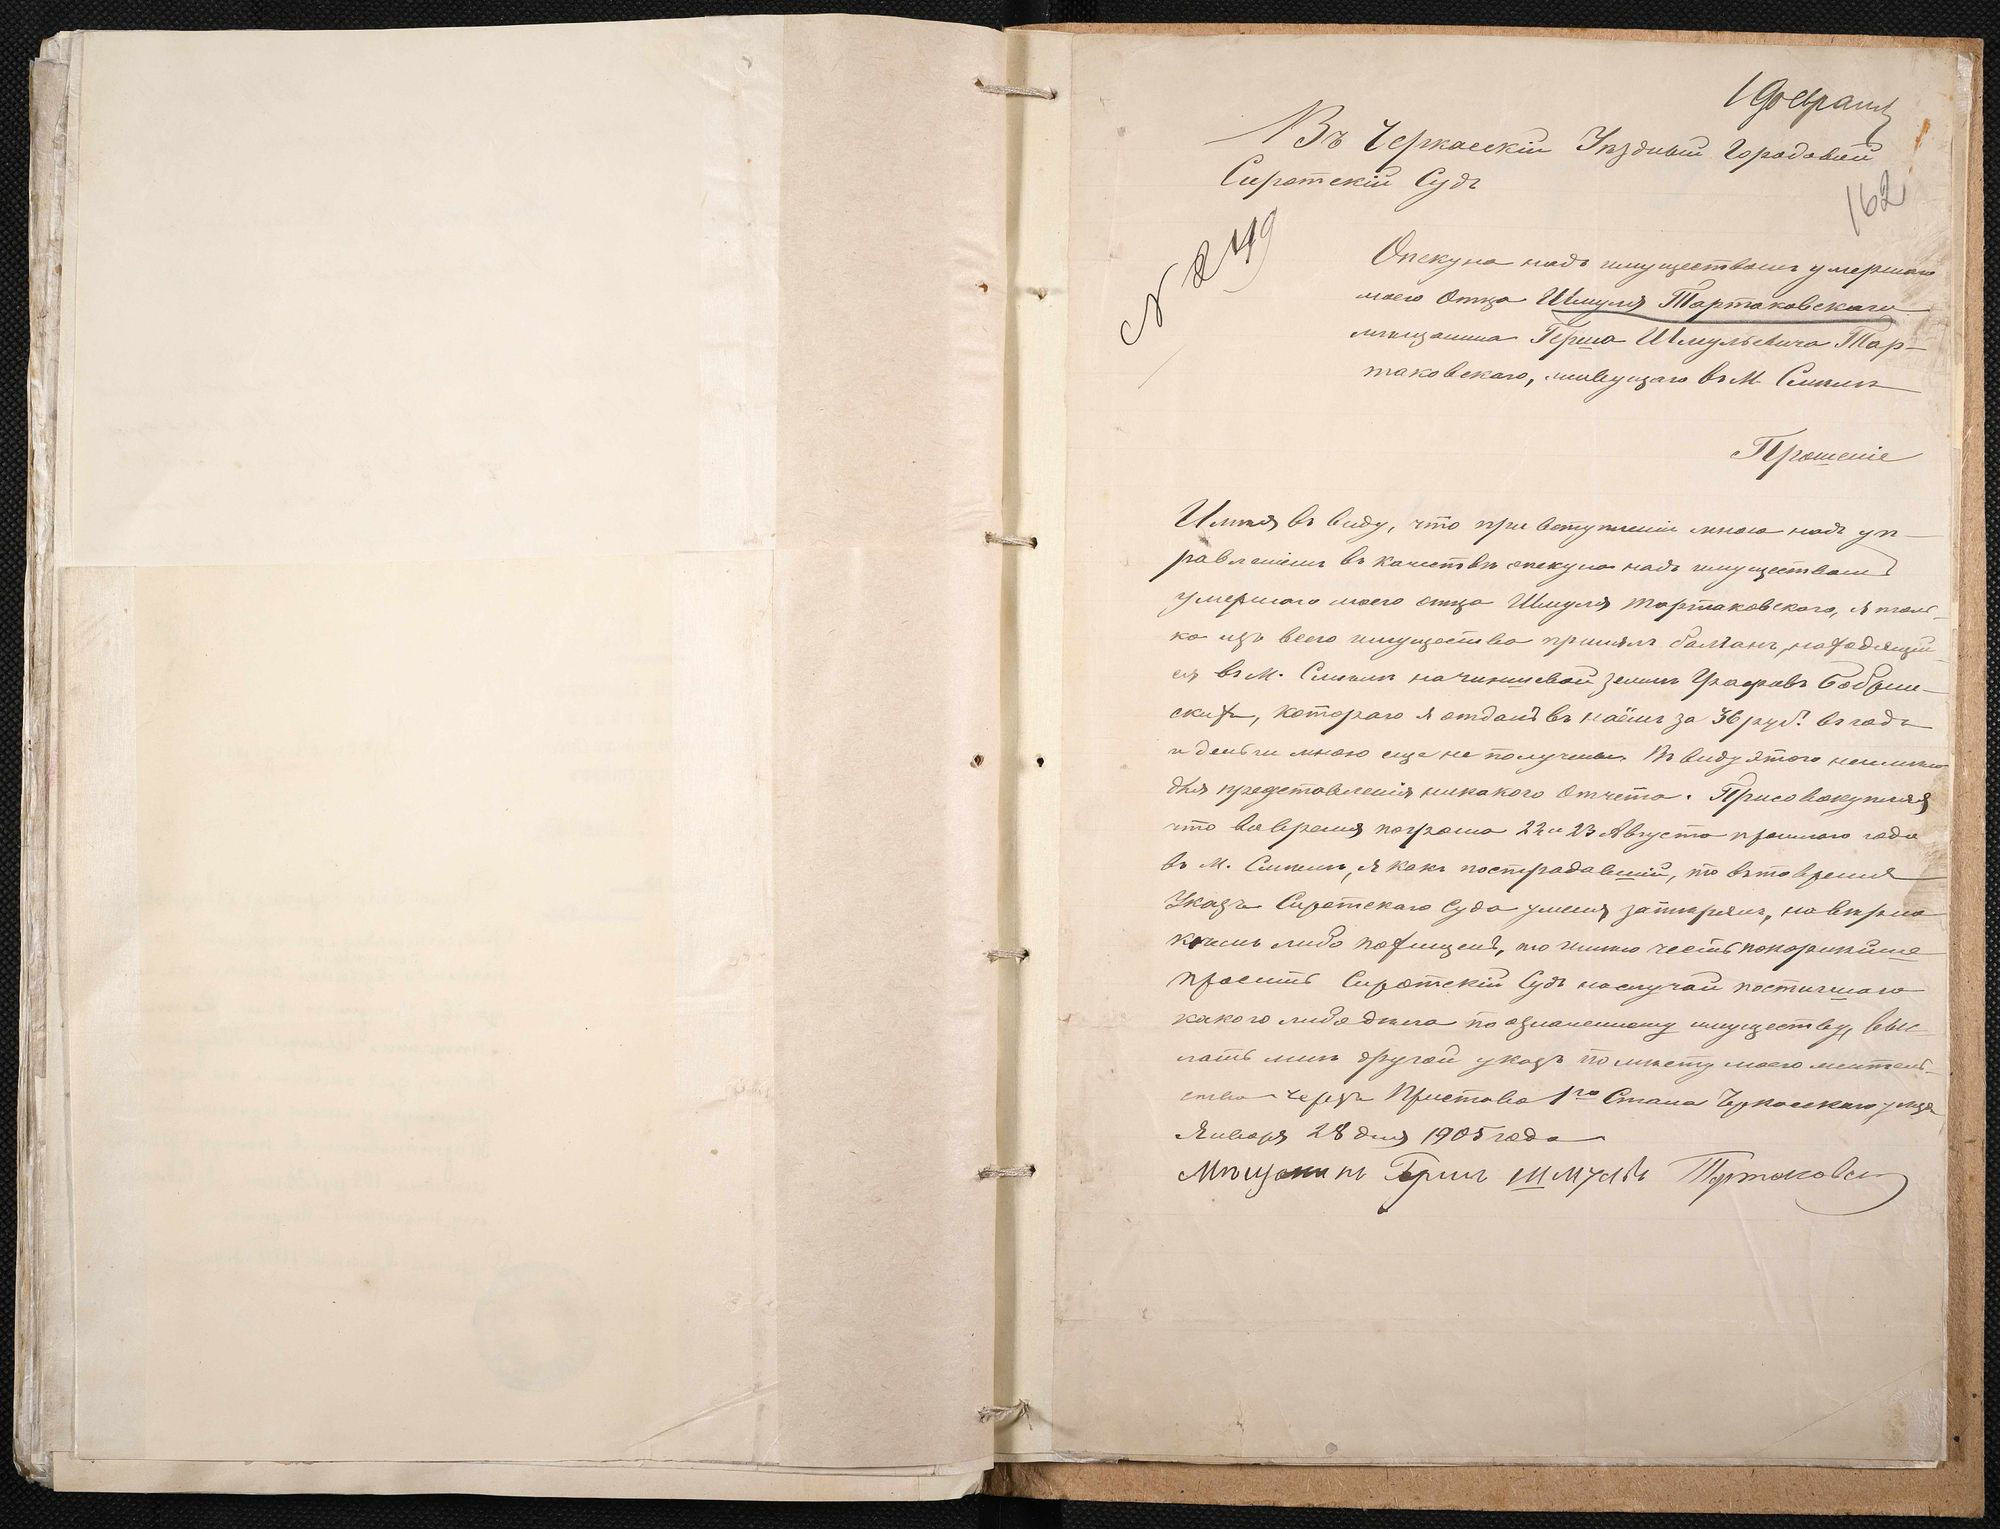 1 Февраля
Въ Черкасскій Уѣздный Городовой
Сиротскій Судъ
162
№ 249
Опекуна надъ имуществомъ умершаго
моего Отца Шмуля Тартаковскаго
мѣщанина Герша Шмулевича Тар-
таковскаго, живущаго въ М. Смѣлѣ
Прошеніе
Имѣя въ виду, что при вступленіи мною надъ уп-
равленіемъ въ качествѣ опекуна надъ имуществомъ
умершаго моего отца Шмуля Тартаковскаго, я толь-
ко изъ всего имущества принялъ балганъ, находящій-
ся въ М. Смѣлѣ на чиншевой землѣ Графовъ Бобрин-
скихъ, котораго я отдалъ въ наёмъ за 36 руб. въ годъ
и деньги мною еще не получены. Въ виду этого неимѣю
для представленія никакого Отчета. Присовокупляя
что вовремя погрома 22 и 23 Августа прошлаго года
въ М. Смѣлѣ, я какъ пострадавшій, то въ то время
Указъ Сиротскаго Суда у меня затерянъ, навѣрно
кѣмъ либо похищенъ, то имѣю честь покорнѣйше
просить Сиротскій Судъ на случай постигшаго
какого либо дѣла по означенному имуществу, выс-
лать мнѣ другой указъ по мѣсту моего житель-
ства черезъ Пристава 1го Стана Черкасскаго уѣзда
Января 28 дня 1905 года
Мѣщанинъ Гершъ Шмулъ Тартаковскі